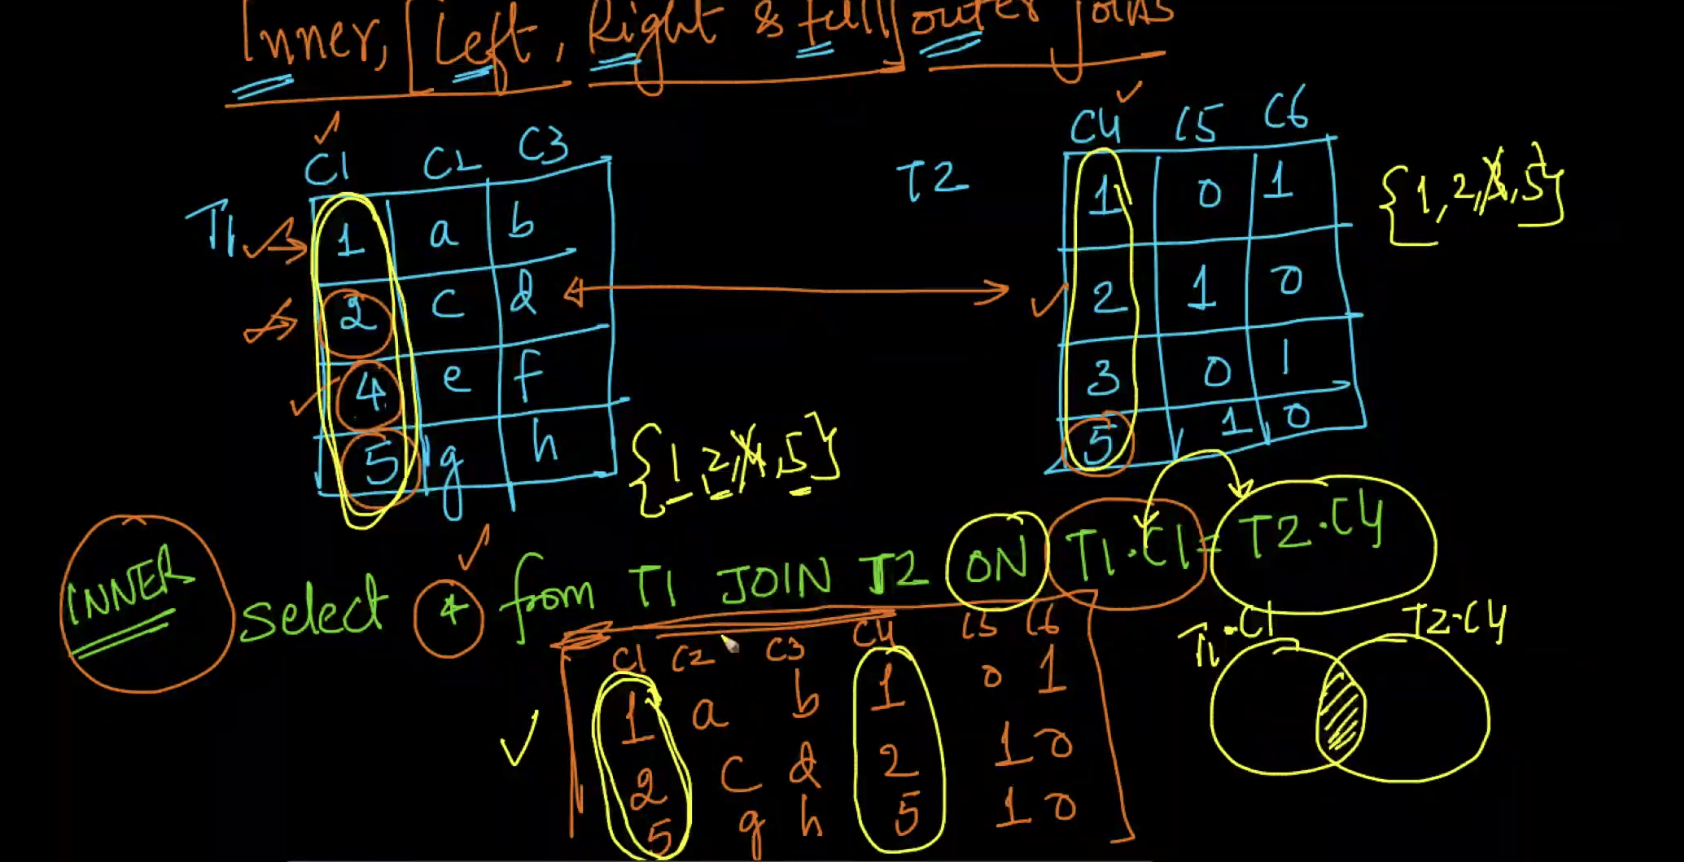 Inner, [Left, Right & full] outer joins
C1 C2 C3
T1
1 a b
2 c d
4 e f
5 g h
{1, 2, 4, 5}
T2
C4 C5 C6
1 0 1
2 1 0
3 0 1
5 1 0
{1, 2, 3, 5}
INNER
select * from T1 JOIN T2 ON T1.C1 = T2.C4
C1 C2 C3 C4 C5 C6
1 a b 1 0 1
2 c d 2 1 0
5 g h 5 1 0
T1.C1 T2.C4